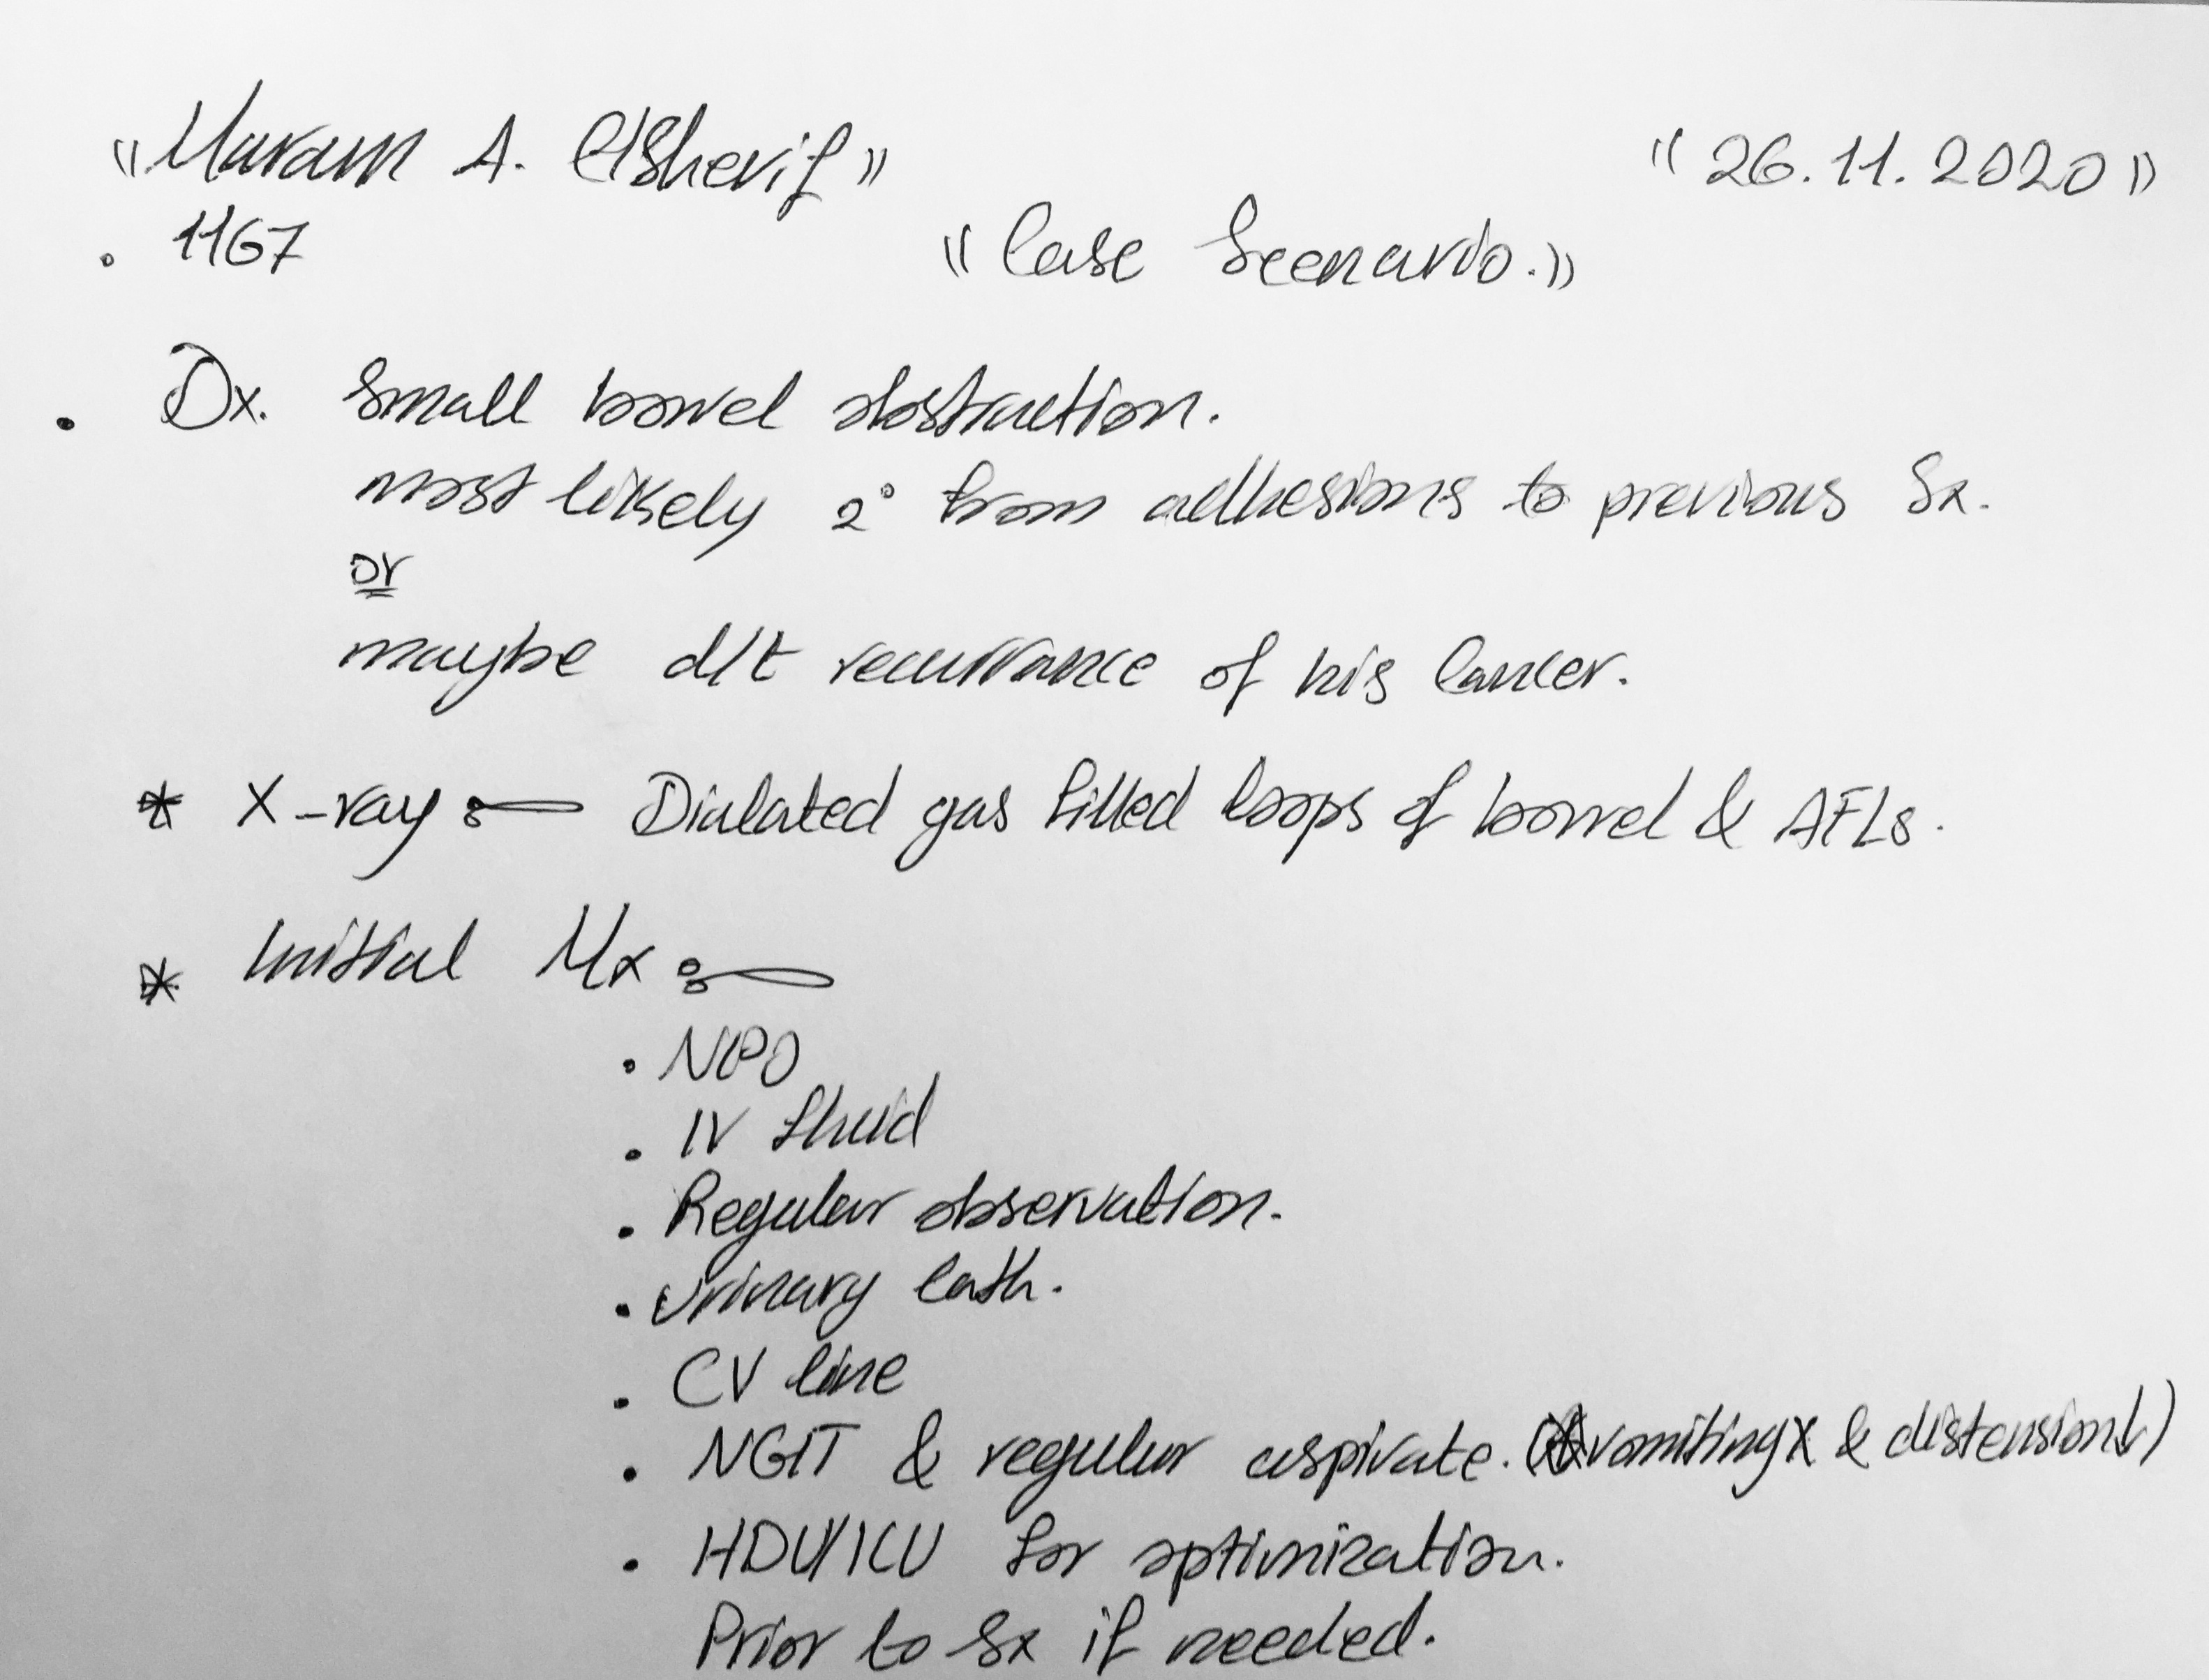 "Maram A. ElSherif" "26.11.2020"
. 1167 "Case Scenario."
. Dx. Small bowel obstruction.
most likely 2° from adhesions to previous Sx.
or
maybe d/t recurrance of his Cancer.
* X-ray :- Dialated gas filled loops of bowel & AFLs.
* Initial Mx :-
. NPO
. IV fluid
. Regular observation.
. Urinary Cath.
. CV line
. NGT & regular aspirate. (vomiting x & distension↓)
. HDU/ICU for optimization.
Prior to Sx if needed.